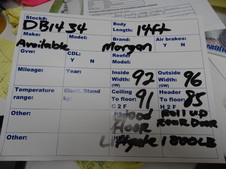 Stock#: DB1434
Body Length: 14ft
Make: Available
Model:
Brand: Morgan
Air brakes: Y N
Gvw:
CDL: Y N
Roof:
Model:
Mileage:
Year:
Inside Width: 92 (IW)
Outside Width: 96 (OW)
Temperature range:
Elect. Stand by:
Ceiling To floor: 91
Header To floor: 85
Other:
Wood Floor
Roll up Rear Door
Other:
Liftgate 1800LB